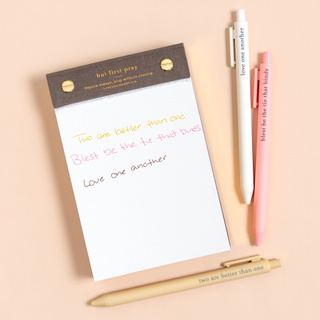 but first pray
rejoice always, pray without ceasing
Two are better than one
Blest be the tie that binds
Love one another
love one another
blest be the tie that binds
two are better than one